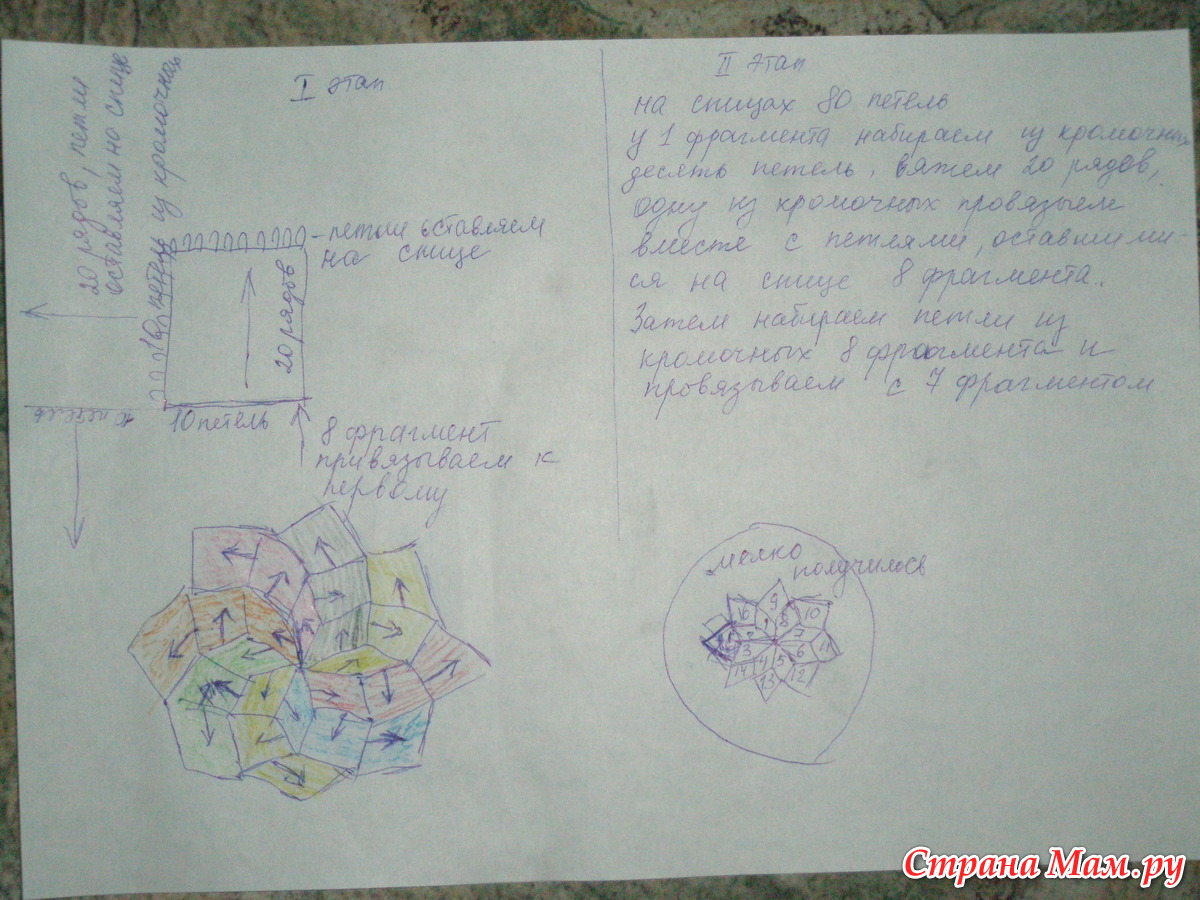 I этап
20 рядов, петли
оставляем на спице
10 петель из кромочных
- петли оставляем
на спице
20 рядов
10 петель
10 петель
8 фрагмент
привязываем к
первому
II этап
на спицах 80 петель
у 1 фрагмента набираем из кромочных
десять петель, вяжем 20 рядов,
одну из кромочных провязыем
вместе с петлями, оставшими-
ся на спице 8 фрагмента.
Затем набираем петли из
кромочных 8 фрагмента и
провязываем с 7 фрагментом
мелко
получилось
9
16 1 8 10
2 7 11
3 6
14 4 5 12
13
Страна Мам.ру